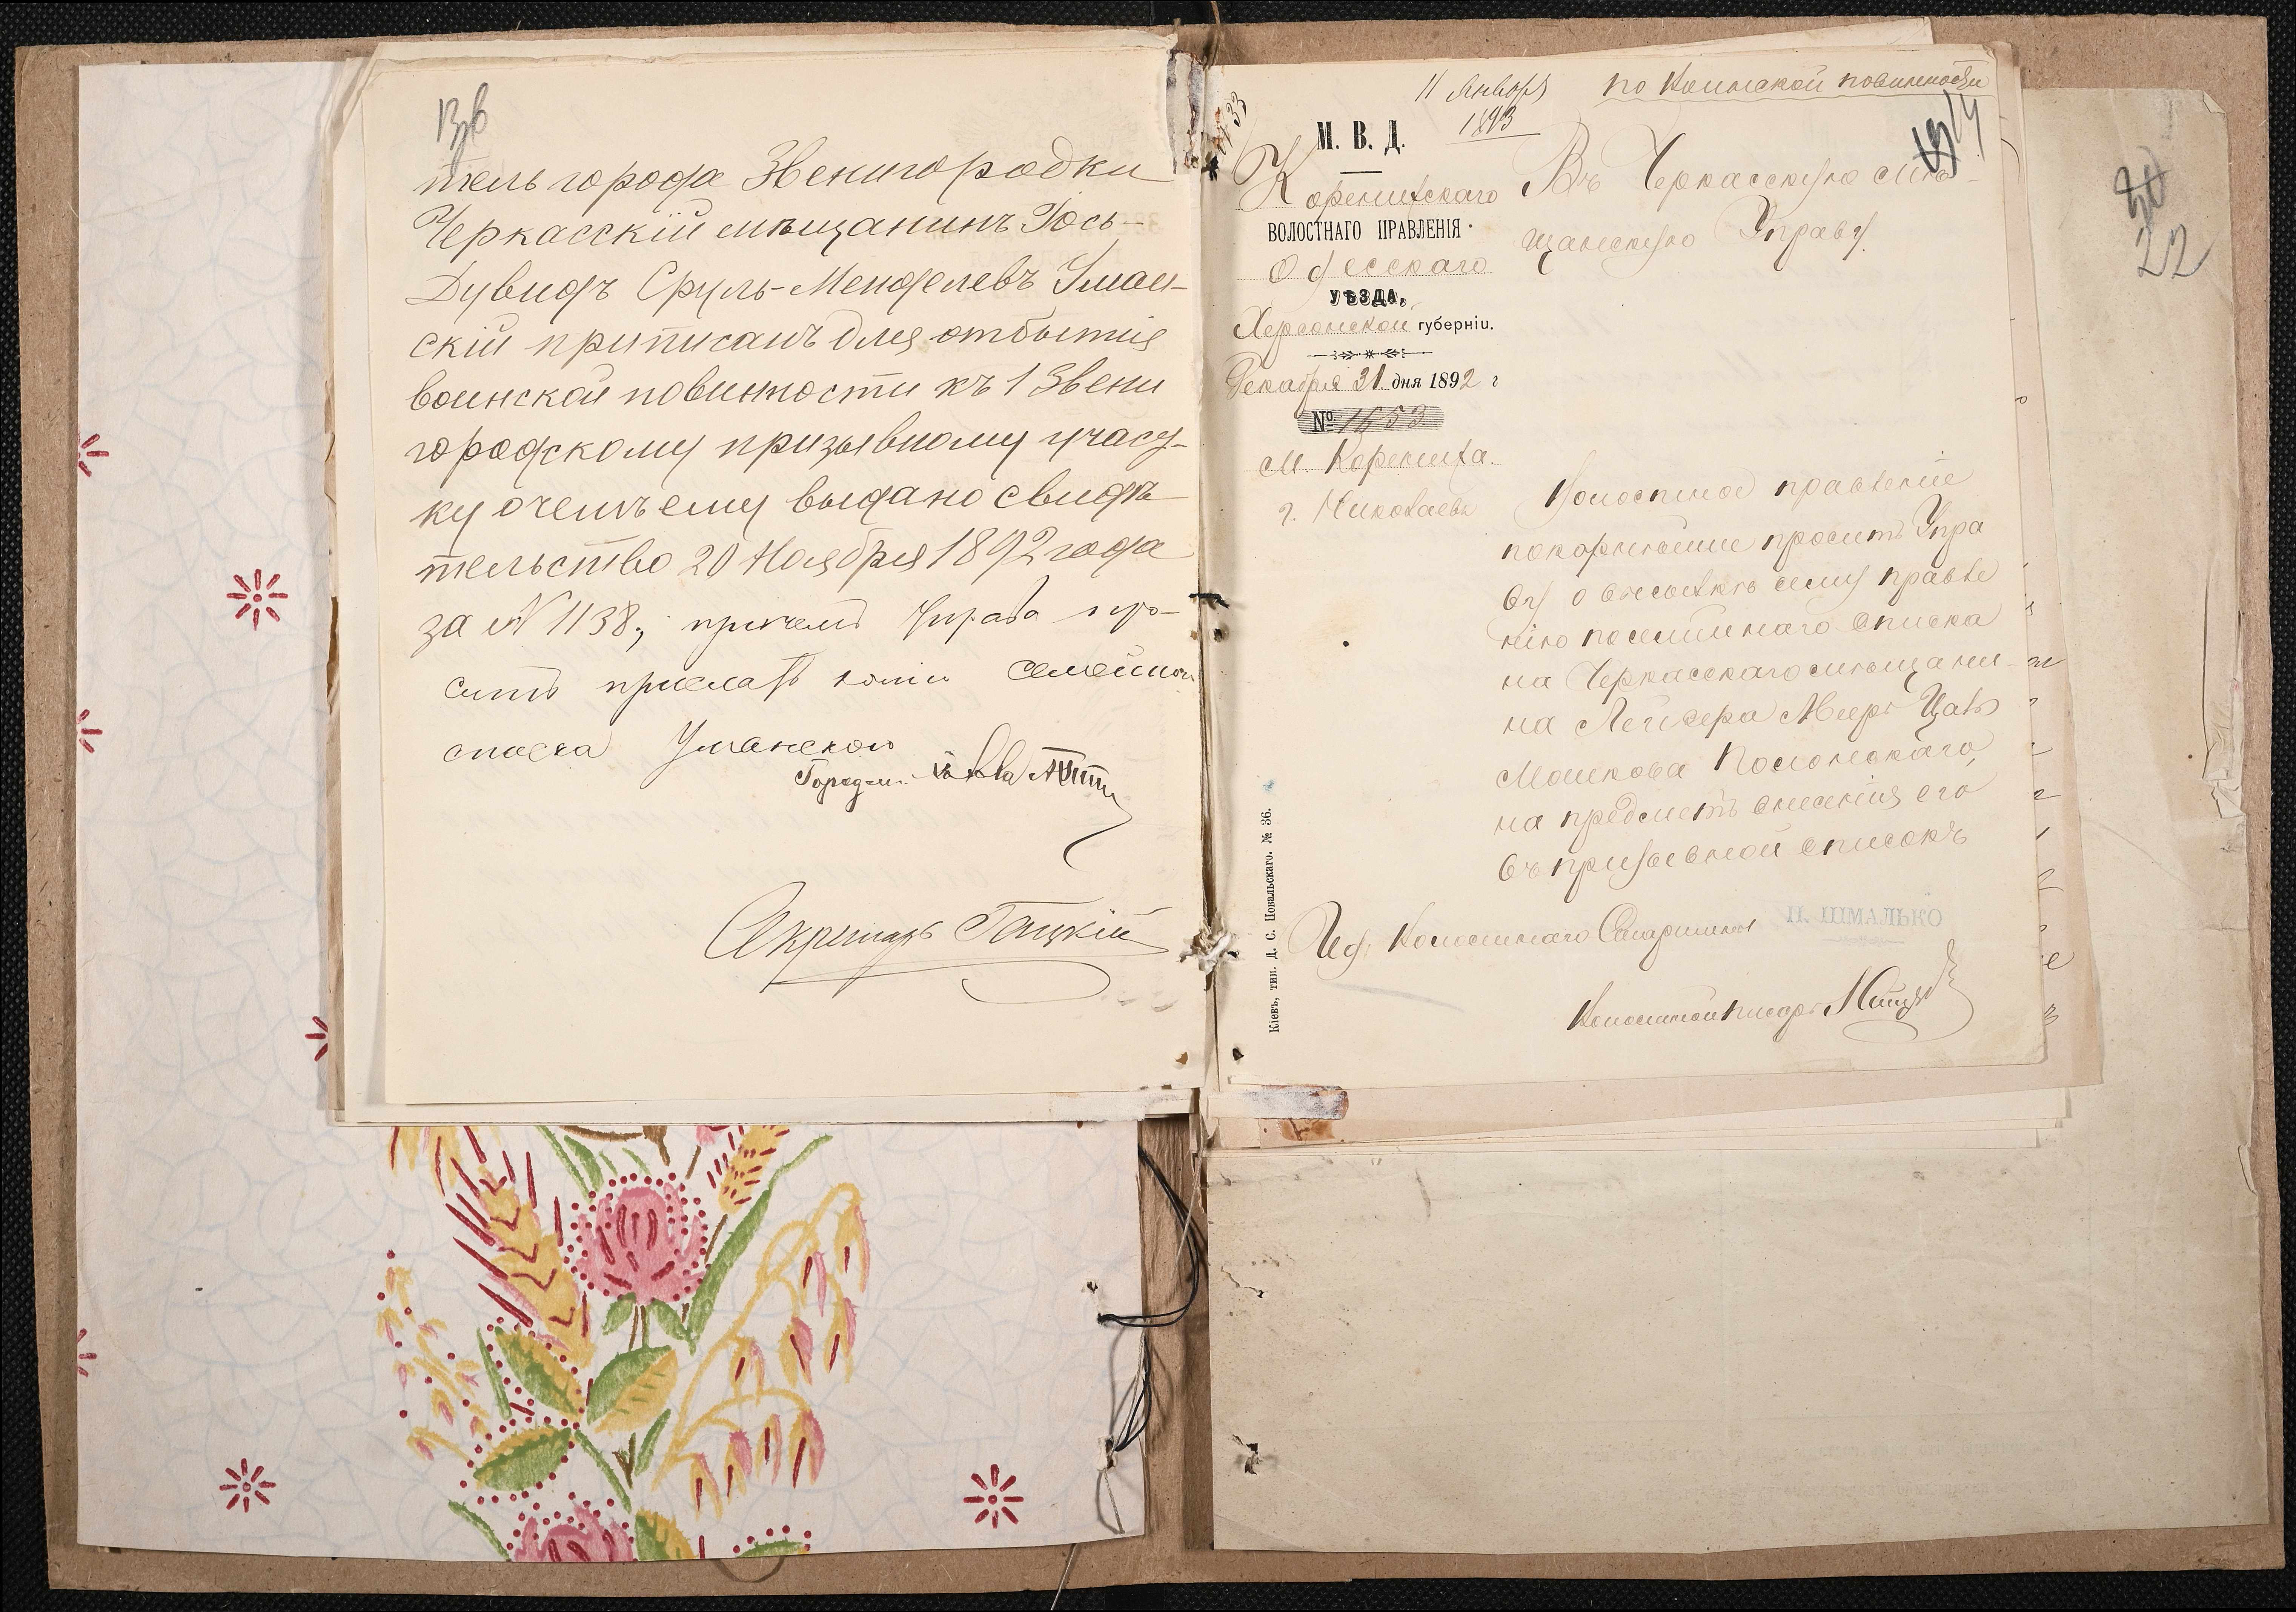 13об
тель города Звенигородки
Черкасскій мѣщанинъ Іось-
Дувидъ Сруль-Менделевъ Уман-
скій приписанъ для отбытія
воинской повинности къ 1 Звени
городскому призывному участ-
ку о чемъ ему выдано свидѣ-
тельство 20 Ноября 1892 года
за № 1138, причемъ Управа про-
ситъ прислать копію семейнаго
списка Уманскаго
Секретарь
11 Января
1893
по Воинской повинности
14
М. В. Д.
Коренихскаго
ВОЛОСТНАГО ПРАВЛЕНІЯ
Одесскаго
УѢЗДА,
Херсонской губерніи.
Декабря 31 дня 1892 г
№ 1653
м. Корениха.
г. Николаевъ
Въ Черкасскую мѣ-
щанскую Управу.
Волостное правленіе
покорнѣйше проситъ Упра
ву о высылкѣ сему правле
нію посемейнаго списка
на Черкасскаго мѣщани-
на Лейзера Меер
Мошкова Полонскаго,
на предметъ внесенія его
въ призывной списокъ
Волостнаго Старшины П. ШМАЛЬКО
Волостной писарь
Кіевъ, тип. Д. С. Повальскаго. № 36.
30
22